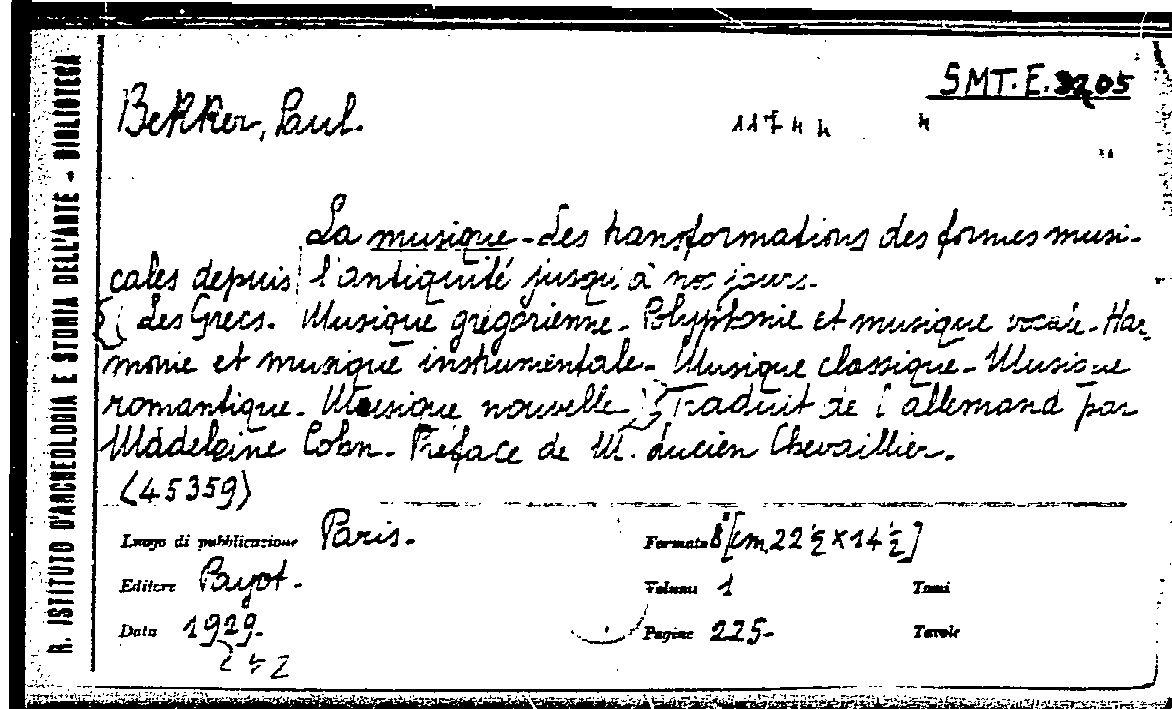 R. ISTITUTO D'ARCHEOLOGIA E STORIA DELL'ARTE - BIBLIOTECA
SMT.E.3205
Bekker, Paul.
11744
La musique - Les transformations des formes musi-
cales depuis l'antiquité jusqu'à nos jours.
Les Grecs. Musique grégorienne - Polyphonie et musique vocale - Har-
monie et musique instrumentale - Musique classique - Musique
romantique - Musique nouvelle. Traduit de l'allemand par
Madeleine Cohn - Préface de M. Lucien Chevaillier.
(45359)
Luogo di pubblicazione Paris. Formato 8° [cm. 22 ½ x 14 ½]
Editore Payot. Volumi 1 Tomi
Data 1929. Pagine 225. Tavole